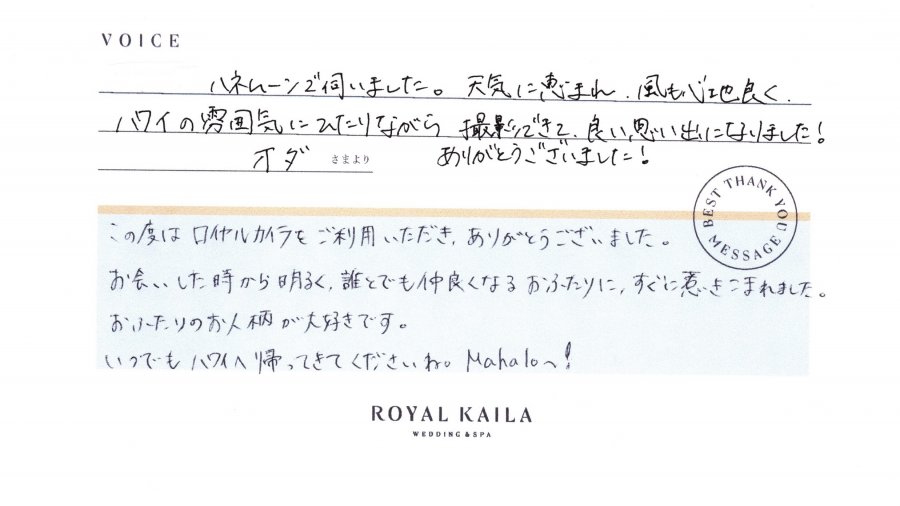 VOICE
ハネムーンで伺いました。天気に恵まれ、風も心地良く、
ハワイの雰囲気にひたりながら 撮影できて、良い思い出になりました!
オダ さまより ありがとうございました!
BEST THANK YOU MESSAGE
この度はロイヤルカイラをご利用いただき、ありがとうございました。
お会いした時から明るく、誰とでも仲良くなるおふたりに、すぐに惹きこまれました。
おふたりのお人柄が大好きです。
いつでもハワイへ帰ってきてくださいね。Mahalo〜!
ROYAL KAILA
WEDDING & SPA